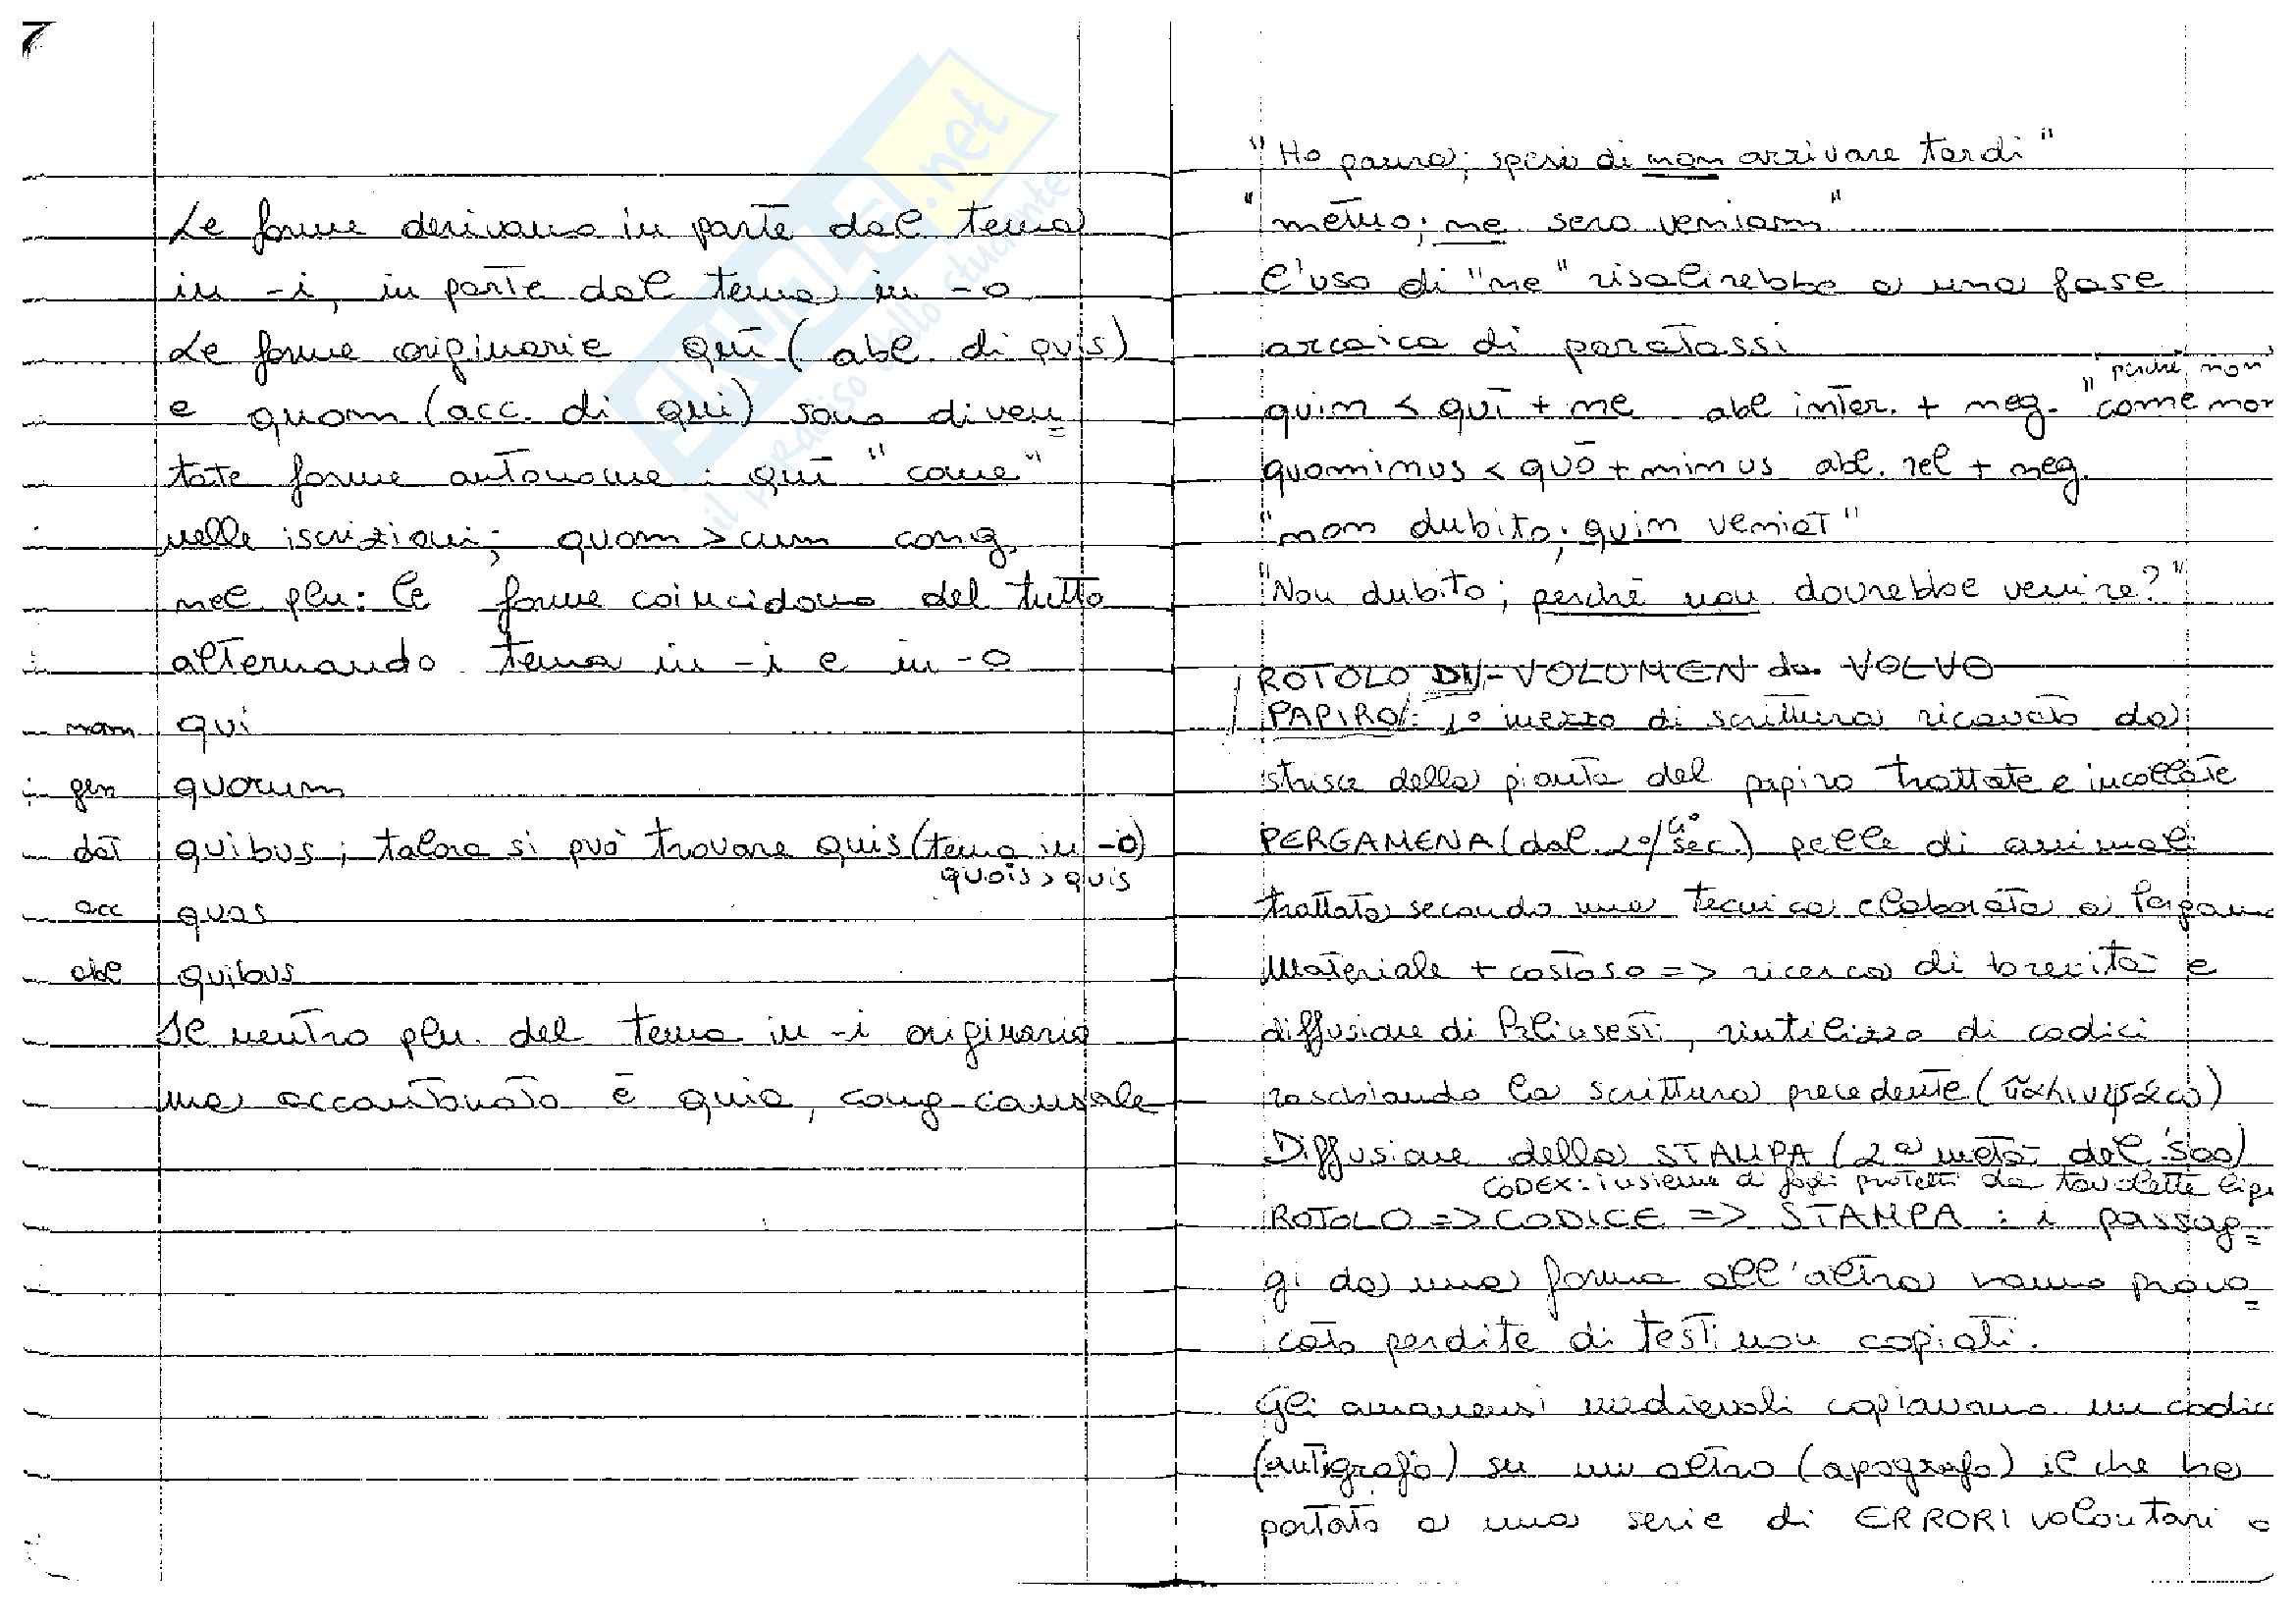 Le forme derivano in parte dal tema
in -i, in parte dal tema in -o
Le forme originarie quī (abl. di quis)
e quam (acc. di qui) sono diven=
tate forme autonome: quī "come"
nelle iscrizioni; quom > cum cong.
nel plu: le forme coincidono del tutto
alternando tema in -i e in -o
nom qui
gen quorum
dat quibus; talora si può trovare quis (tema in -o)
quois > quis
acc quos
abl quibus
Il neutro plu. del tema in -i originario
ma accantonato è quia, cong causale
"Ho paura; spero di non arrivare tardi"
"metuo; ne sero veniam"
l'uso di "ne" risalirebbe a una fase
arcaica di paratassi
"perché non"
quin < quī + ne abl inter. + neg. "come non
quominus < quō + minus abl. rel + neg.
"non dubito; quin veniat"
"Non dubito; perché non dovrebbe venire?"
ROTOLO DI - VOLUMEN da VOLVO
PAPIRO: 1° mezzo di scrittura ricavato da
strisce della pianta del papiro trattate e incollate
PERGAMENA (dal 2°/4° sec.) pelle di animali
trattata secondo una tecnica elaborata a Pergam
Materiale + costoso => ricerca di brevità e
diffusione di Palinsesti, riutilizzo di codici
raschiando la scrittura precedente (παλινψάω)
Diffusione della STAMPA (2a metà del '500)
CODEX: insieme di fogli protetti da tavolette lign
ROTOLO => CODICE => STAMPA: i passag=
gi da una forma all'altra hanno provo=
cato perdite di testi non copiati.
Gli amanuensi medievali copiavano un codice
(antigrafo) su un altro (apografo) il che ha
portato a una serie di ERRORI volontari o
il paradiso dello studente
SKUOLA.net